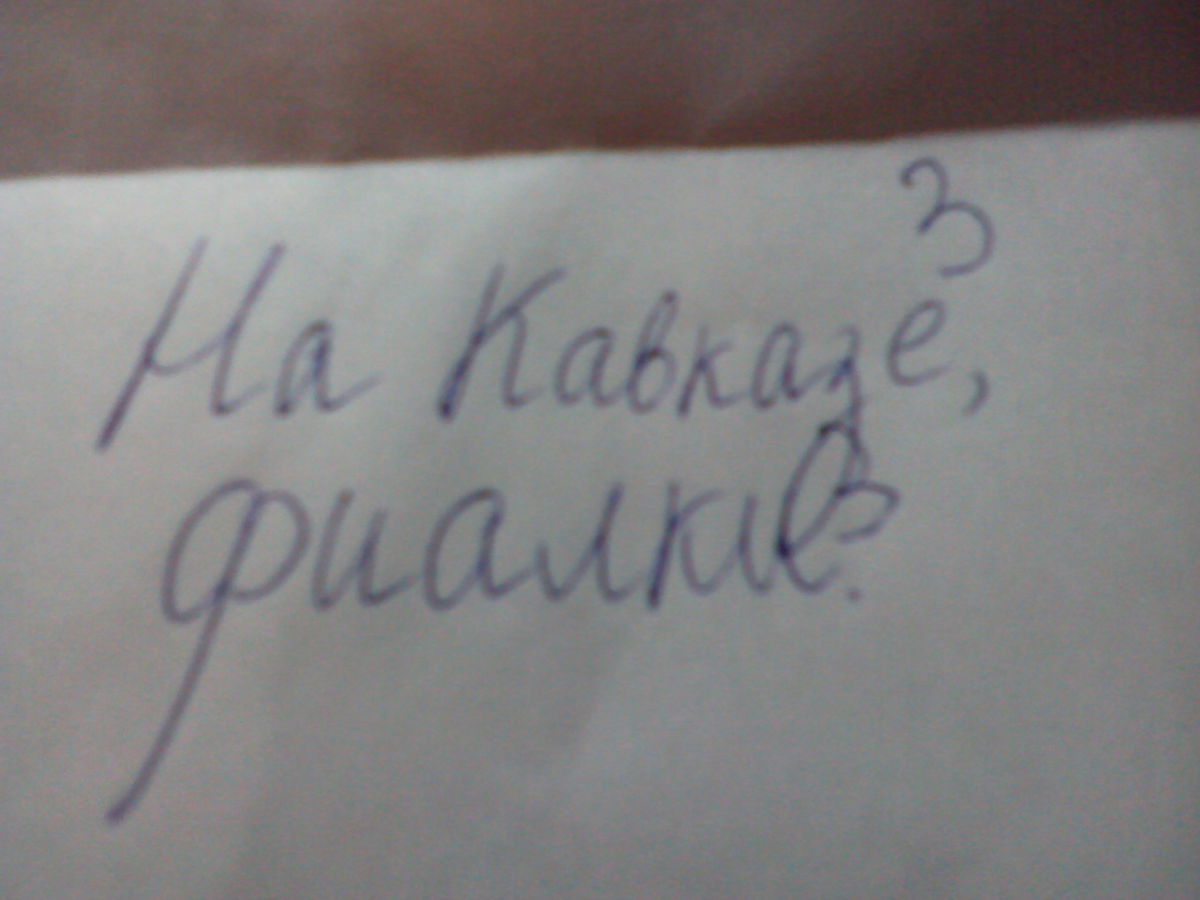 3
На Кавказе,
фиалкив.